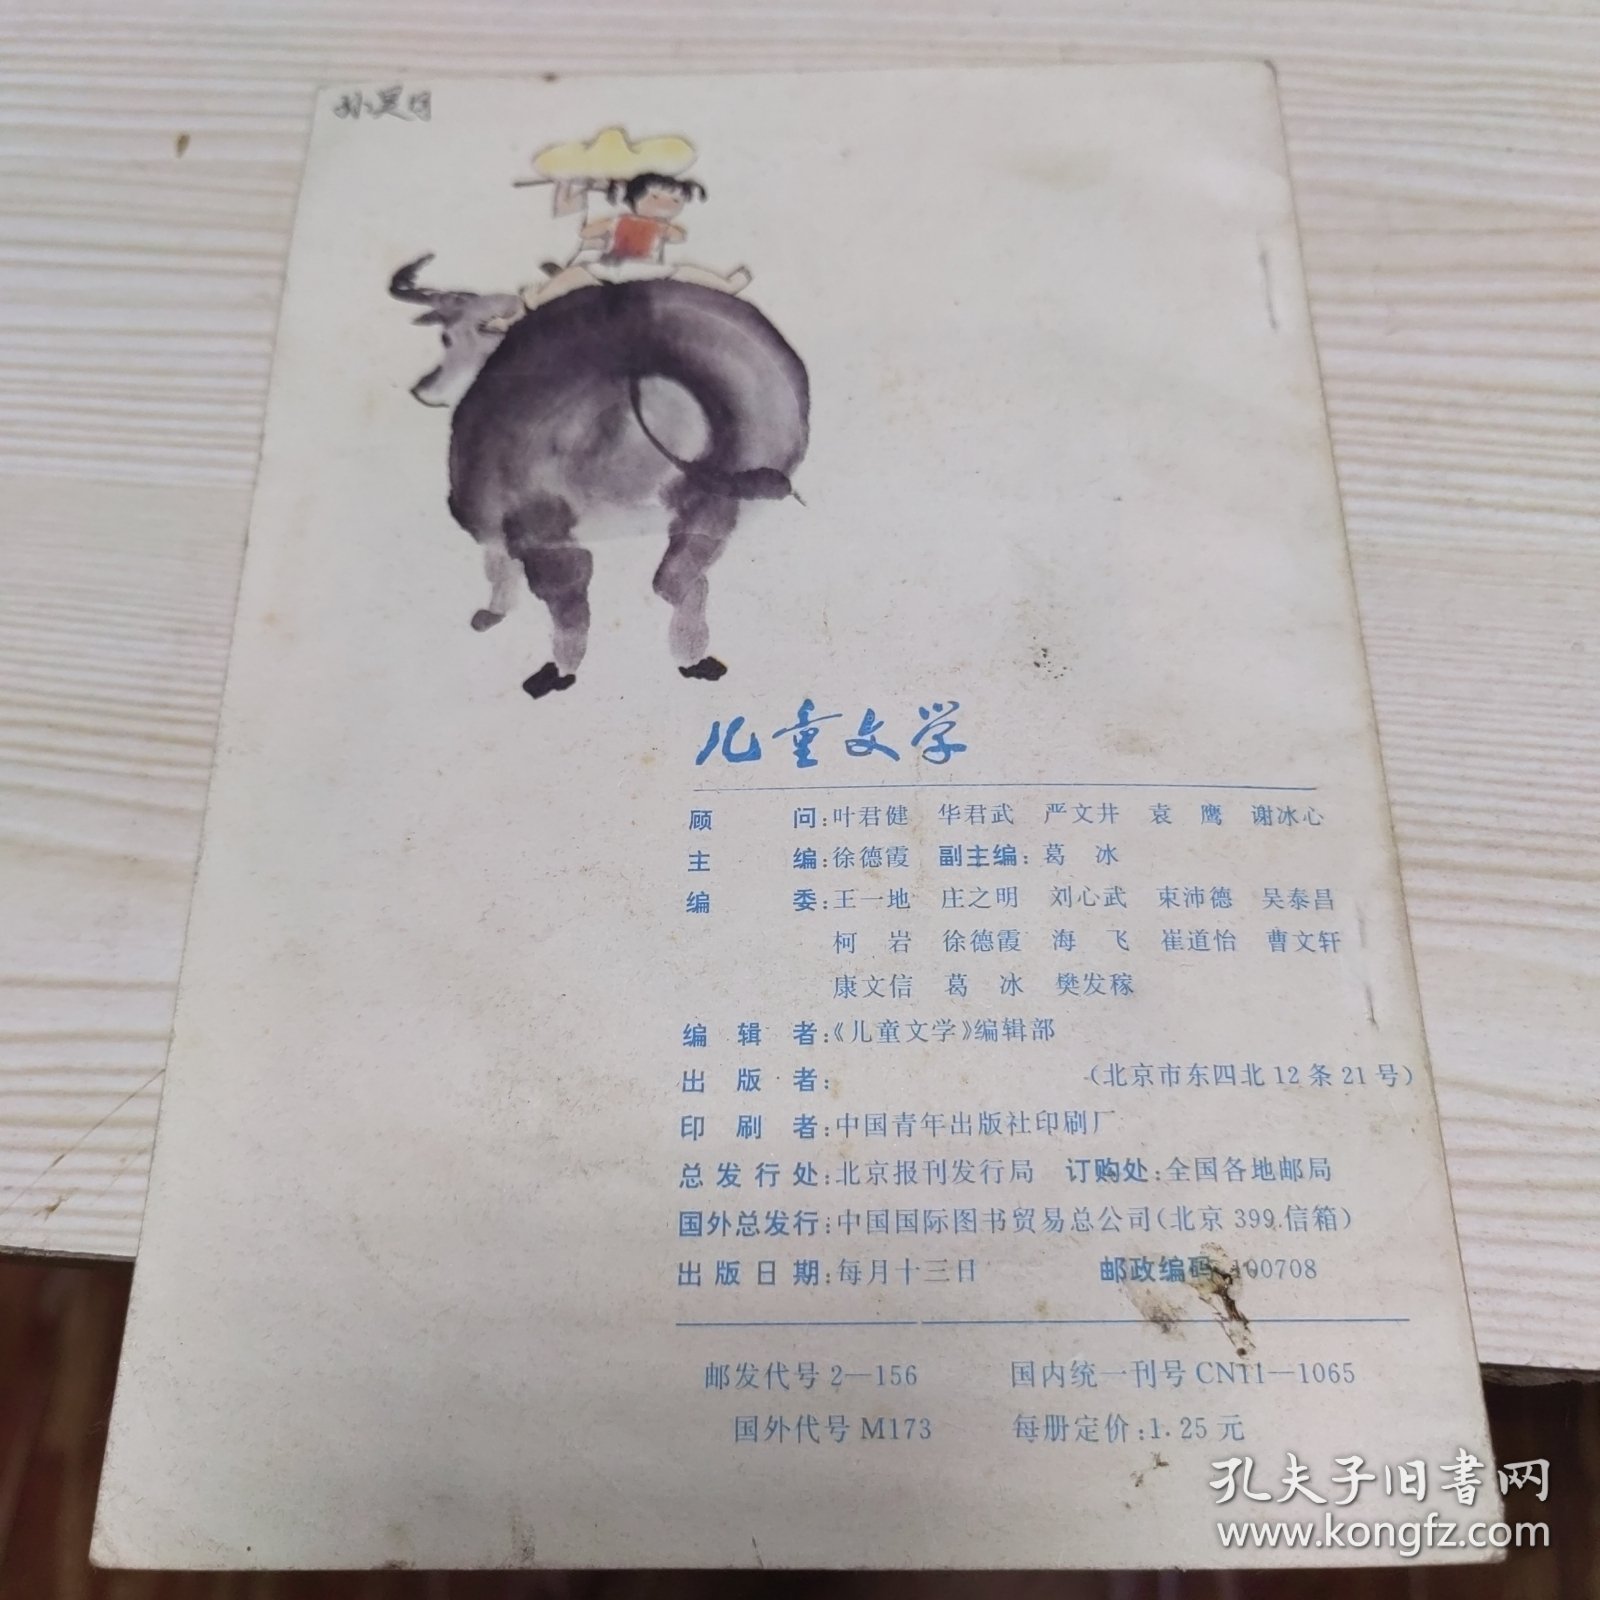 儿童文学
顾 问:叶君健 华君武 严文井 袁 鹰 谢冰心
主 编:徐德霞 副主编:葛 冰
编 委:王一地 庄之明 刘心武 束沛德 吴泰昌
柯 岩 徐德霞 海 飞 崔道怡 曹文轩
康文信 葛 冰 樊发稼
编 辑 者:《儿童文学》编辑部
出 版 者: (北京市东四北12条21号)
印 刷 者:中国青年出版社印刷厂
总 发 行 处:北京报刊发行局 订购处:全国各地邮局
国外总发行:中国国际图书贸易总公司(北京 399.信箱)
出 版 日 期:每月十三日 邮政编码 100708
邮发代号 2—156 国内统一刊号 CN11—1065
国外代号 M173 每册定价:1.25 元
孔夫子旧书网
www.kongfz.com